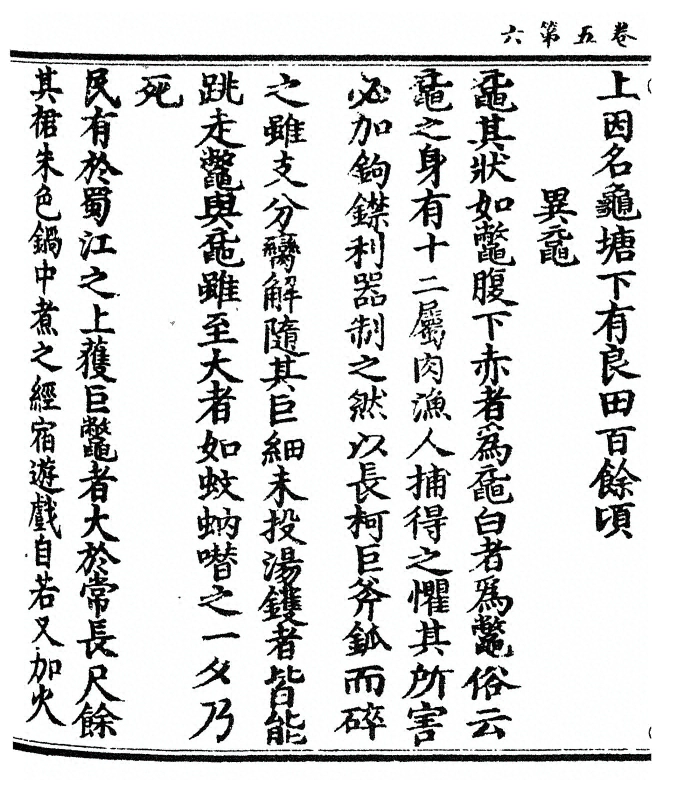 卷五第六
上因名龜塘下有良田百餘頃
異黿
黿其狀如鼈腹下赤者為黿白者爲鼈俗云
黿之身有十二屬肉漁人捕得之懼其所害
必加鉤鐷利器制之然以長柯巨斧鈲而碎
之雖支分臠解隨其巨細未投湯鑊者皆能
跳走鼈與黿雖至大者如蚊蚋噆之一夕乃
死
民有於蜀江之上獲巨鼈者大於常長尺餘
其裙朱色鍋中煮之經宿遊戲自若又加火